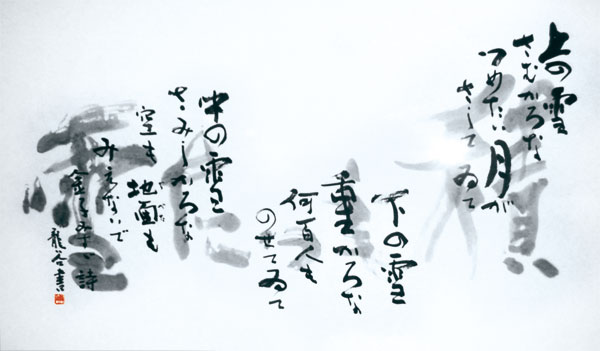 積
雪
上の雪
さむかろな
つめたい月が
さしてゐて
下の雪
重かろな
何百人も
のせてゐて
中の雪
さみしかろな
空も
地面も
みえないで
金子みすゞ詩
龍谷書